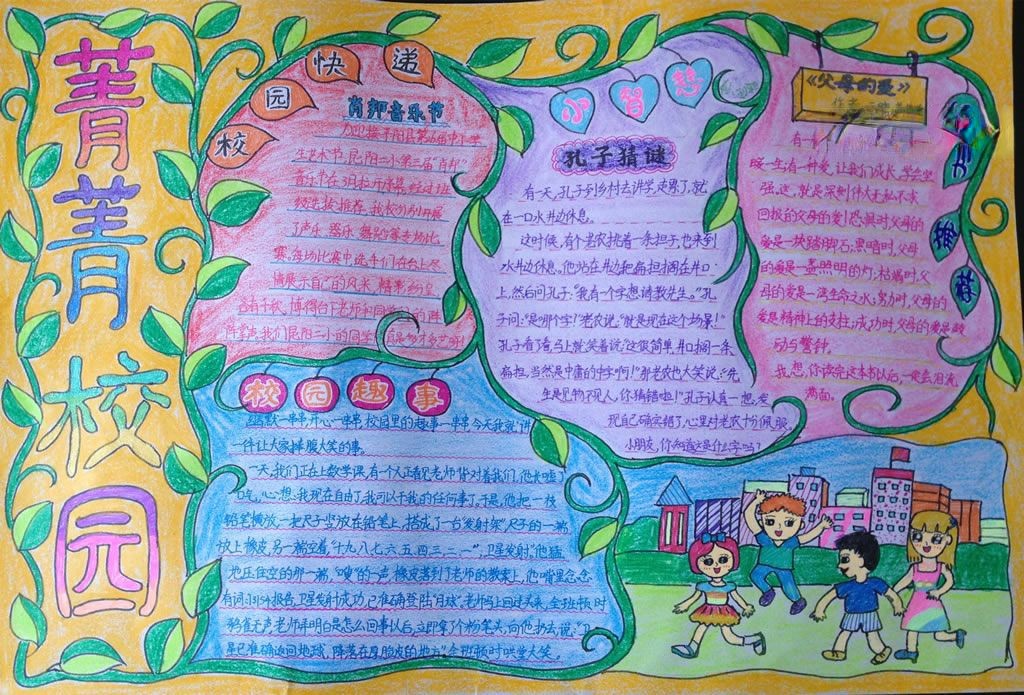 菁菁校园
校园快递
肖邦音乐节
为迎接平阳县第六届中小学
生艺术节,昆阳二小第三届"肖邦"
音乐节在3月拉开序幕,经过班
级选拔、推荐,我校分别开展
了声乐、器乐、舞蹈等专场比
赛。每场比赛中选手们在台上尽
情展示自己的风采,精彩纷呈
各有千秋,博得台下老师和同学们的阵
阵掌声,我们昆阳二小的同学
小智慧
孔子猜谜
有一天,孔子到乡村去讲学,走累了,就
在一口水井边休息。
这时候,有个老农挑着一条担子,也来到
水井边休息。他站在井边把扁担搁在井口
上,然后问孔子:"我有一个字想请教先生。"孔
子问:"是哪个字!"老农说:"就是现在这个场景!"
孔子看了看,马上就笑着说:"这很简单,井口搁一条
扁担,当然是中庸的中字啊!"那老农也大笑说:"先
生是见物不见人,你猜错啦!"孔子认真一想,发
现自己确实错了,心里对老农十分佩服。
小朋友,你知道这是什么字吗?
《父母的爱》
作者
有一
暖一生;有一种爱,让我们成长,学会坚
强。这,就是深刻伟大无私不求
回报的父母的爱!恐惧时,父母的
爱是一块踏脚石;黑暗时,父母
的爱是一盏照明的灯;枯竭时,父
母的爱是一湾生命之水;努力时,父母的
爱是精神上的支柱;成功时,父母的爱是鼓
励与警钟。
我想,你读完这本书以后,一定会泪流
满面。
推
荐
校园趣事
幽默一串串,开心一串串,校园里的趣事一串串,今天我就讲
一件让大家捧腹大笑的事。
一天,我们正在上数学课,有个人正看见老师背对着我们,他长嘘了
一口气,心想:我现在自由了,我可以干我的任何事了。于是,他把一枝
铅笔横放,一把尺子竖放在铅笔上,搭成了一台"发射架",尺子的一端
放上橡皮,另一端空着,"十、九、八、七、六、五、四、三、二、一","卫星发射",他猛
地压住空的那一端,"嗖"的一声,橡皮落到了老师的教案上,他嘴里念念
有词:"报告,卫星发射成功,已准确登陆'月球'。老师马上回过头来,全班顿时
鸦雀无声,老师弄明白是怎么回事以后,立即拿了个粉笔头,向他扔去,说:"卫
星已准确返回地球,降落在厚脸皮的地方。"全班顿时哄堂大笑。